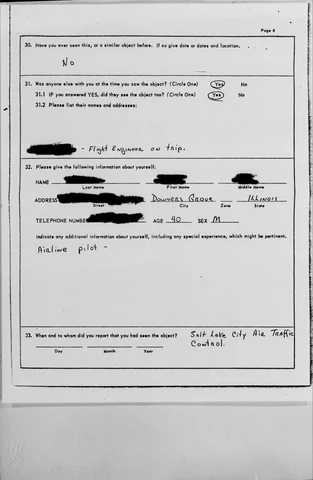 Page 8
30. Have you ever seen this, or a similar object before. If so give date or dates and location.
No
31. Was anyone else with you at the time you saw the object? (Circle One) Yes No
31.1 IF you answered YES, did they see the object too? (Circle One) Yes No
31.2 Please list their names and addresses:
- Flight Engineer on trip.
32. Please give the following information about yourself:
NAME
Last Name First Name Middle Name
ADDRESS Downers Grove Illinois
Street City Zone State
TELEPHONE NUMBER AGE 40 SEX M
Indicate any additional information about yourself, including any special experience, which might be pertinent.
Airline pilot -
33. When and to whom did you report that you had seen the object? Salt Lake City Air Traffic
Control.
Day Month Year